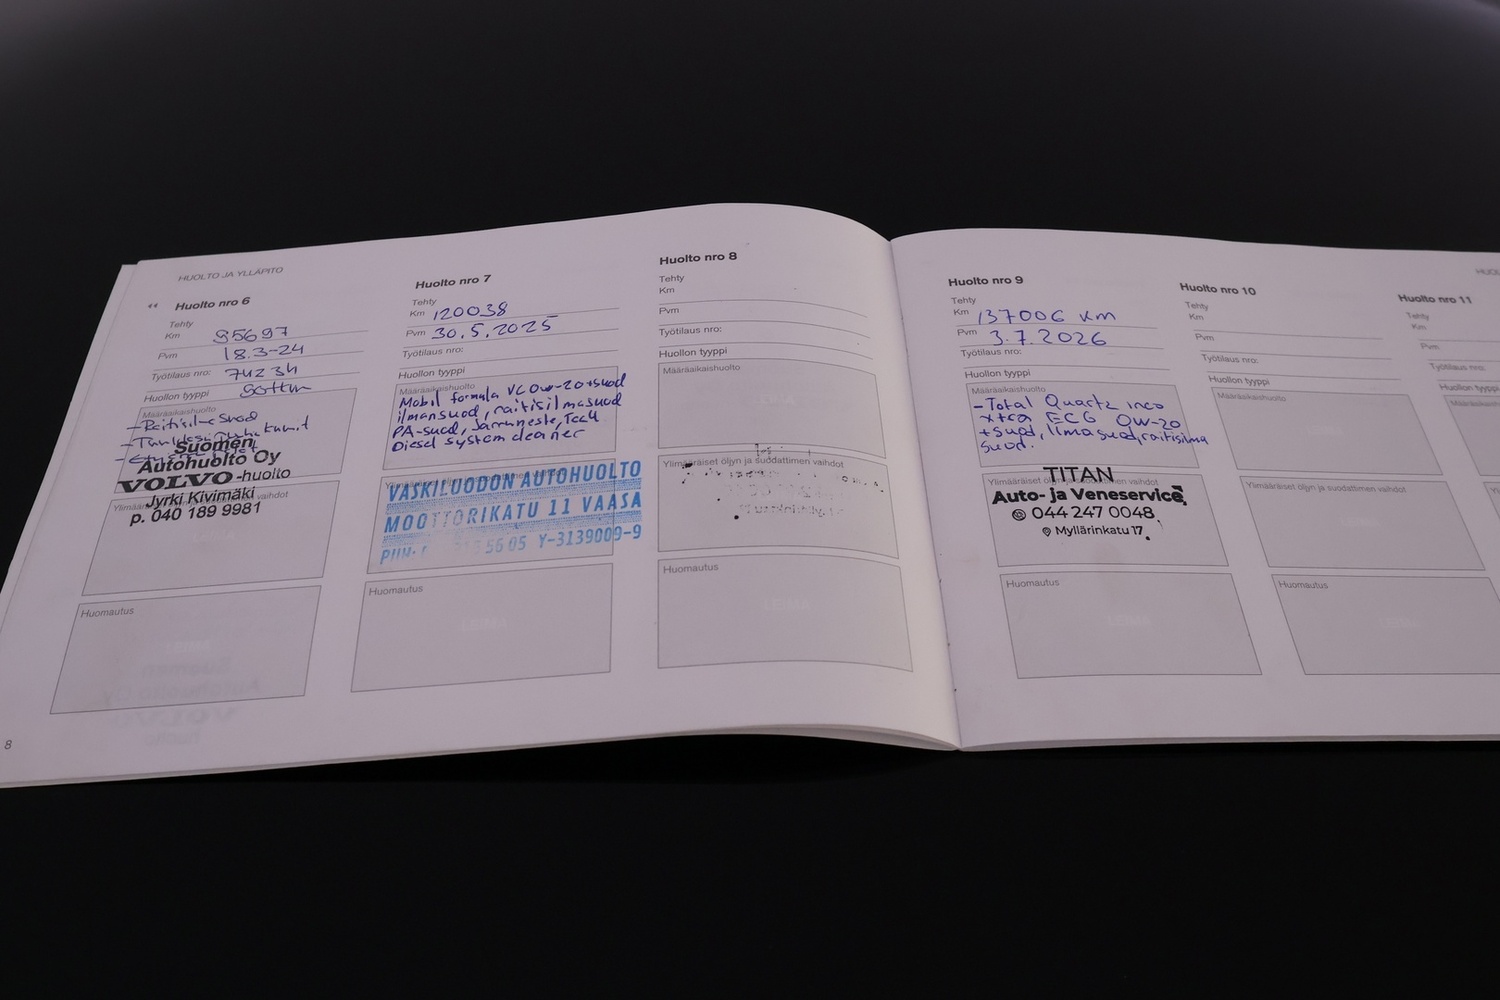 HUOLTO JA YLLÄPITO
Huolto nro 6
Tehty
Km 95697
Pvm 18.3-24
Työtilaus nro: 74234
Huollon tyyppi
Määräaikaishuolto
Suomen
Autohuolto Oy
VOLVO-huolto
Jyrki Kivimäki
Ylimääräiset öljyn ja suodattimen vaihdot
p. 040 189 9981
LEIMA
Huomautus
8
Huolto nro 7
Tehty
Km 120038
Pvm 30.5.2025
Työtilaus nro:
Huollon tyyppi
Määräaikaishuolto
Mobil formula VC 0w-20+suod
ilmansuod, raitisilmasuod
PA-suod, Jarruneste, Tecu
Diesel system cleaner
VASKILUODON AUTOHUOLTO
MOOTTORIKATU 11 VAASA
56 05 Y-3139009-9
Huomautus
LEIMA
Huolto nro 8
Tehty
Km
Pvm
Työtilaus nro:
Huollon tyyppi
Määräaikaishuolto
Ylimääräiset öljyn ja suodattimen vaihdot
Huomautus
LEIMA
Huolto nro 9
Tehty
Km 137006 km
Pvm 3.7.2026
Työtilaus nro:
Huollon tyyppi
Määräaikaishuolto
-Total Quartz ineo
xtra EC6 0W-20
+suod, ilmasuod, raitisilma
suod.
TITAN
Ylimääräiset öljyn ja suodattimen vaihdot
Auto- ja Veneservice
044 247 0048
Myllärinkatu 17
Huomautus
LEIMA
Huolto nro 10
Tehty
Km
Pvm
Työtilaus nro:
Huollon tyyppi
Määräaikaishuolto
Ylimääräiset öljyn ja suodattimen vaihdot
Huomautus
LEIMA
HUOL
Huolto nro 11
Tehty
Km
Pvm
Työtilaus nro:
Huollon tyyppi